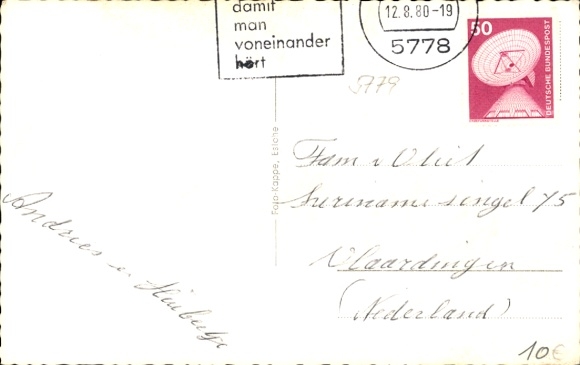 damit
man
voneinander
hört
12.8.80-19
5778
50
DEUTSCHE BUNDESPOST
5779
Foto-Kappe, Eslohe
Fam v Vliet
Surinamesingel 75
Vlaardingen
(Nederland)
Andries en
10€